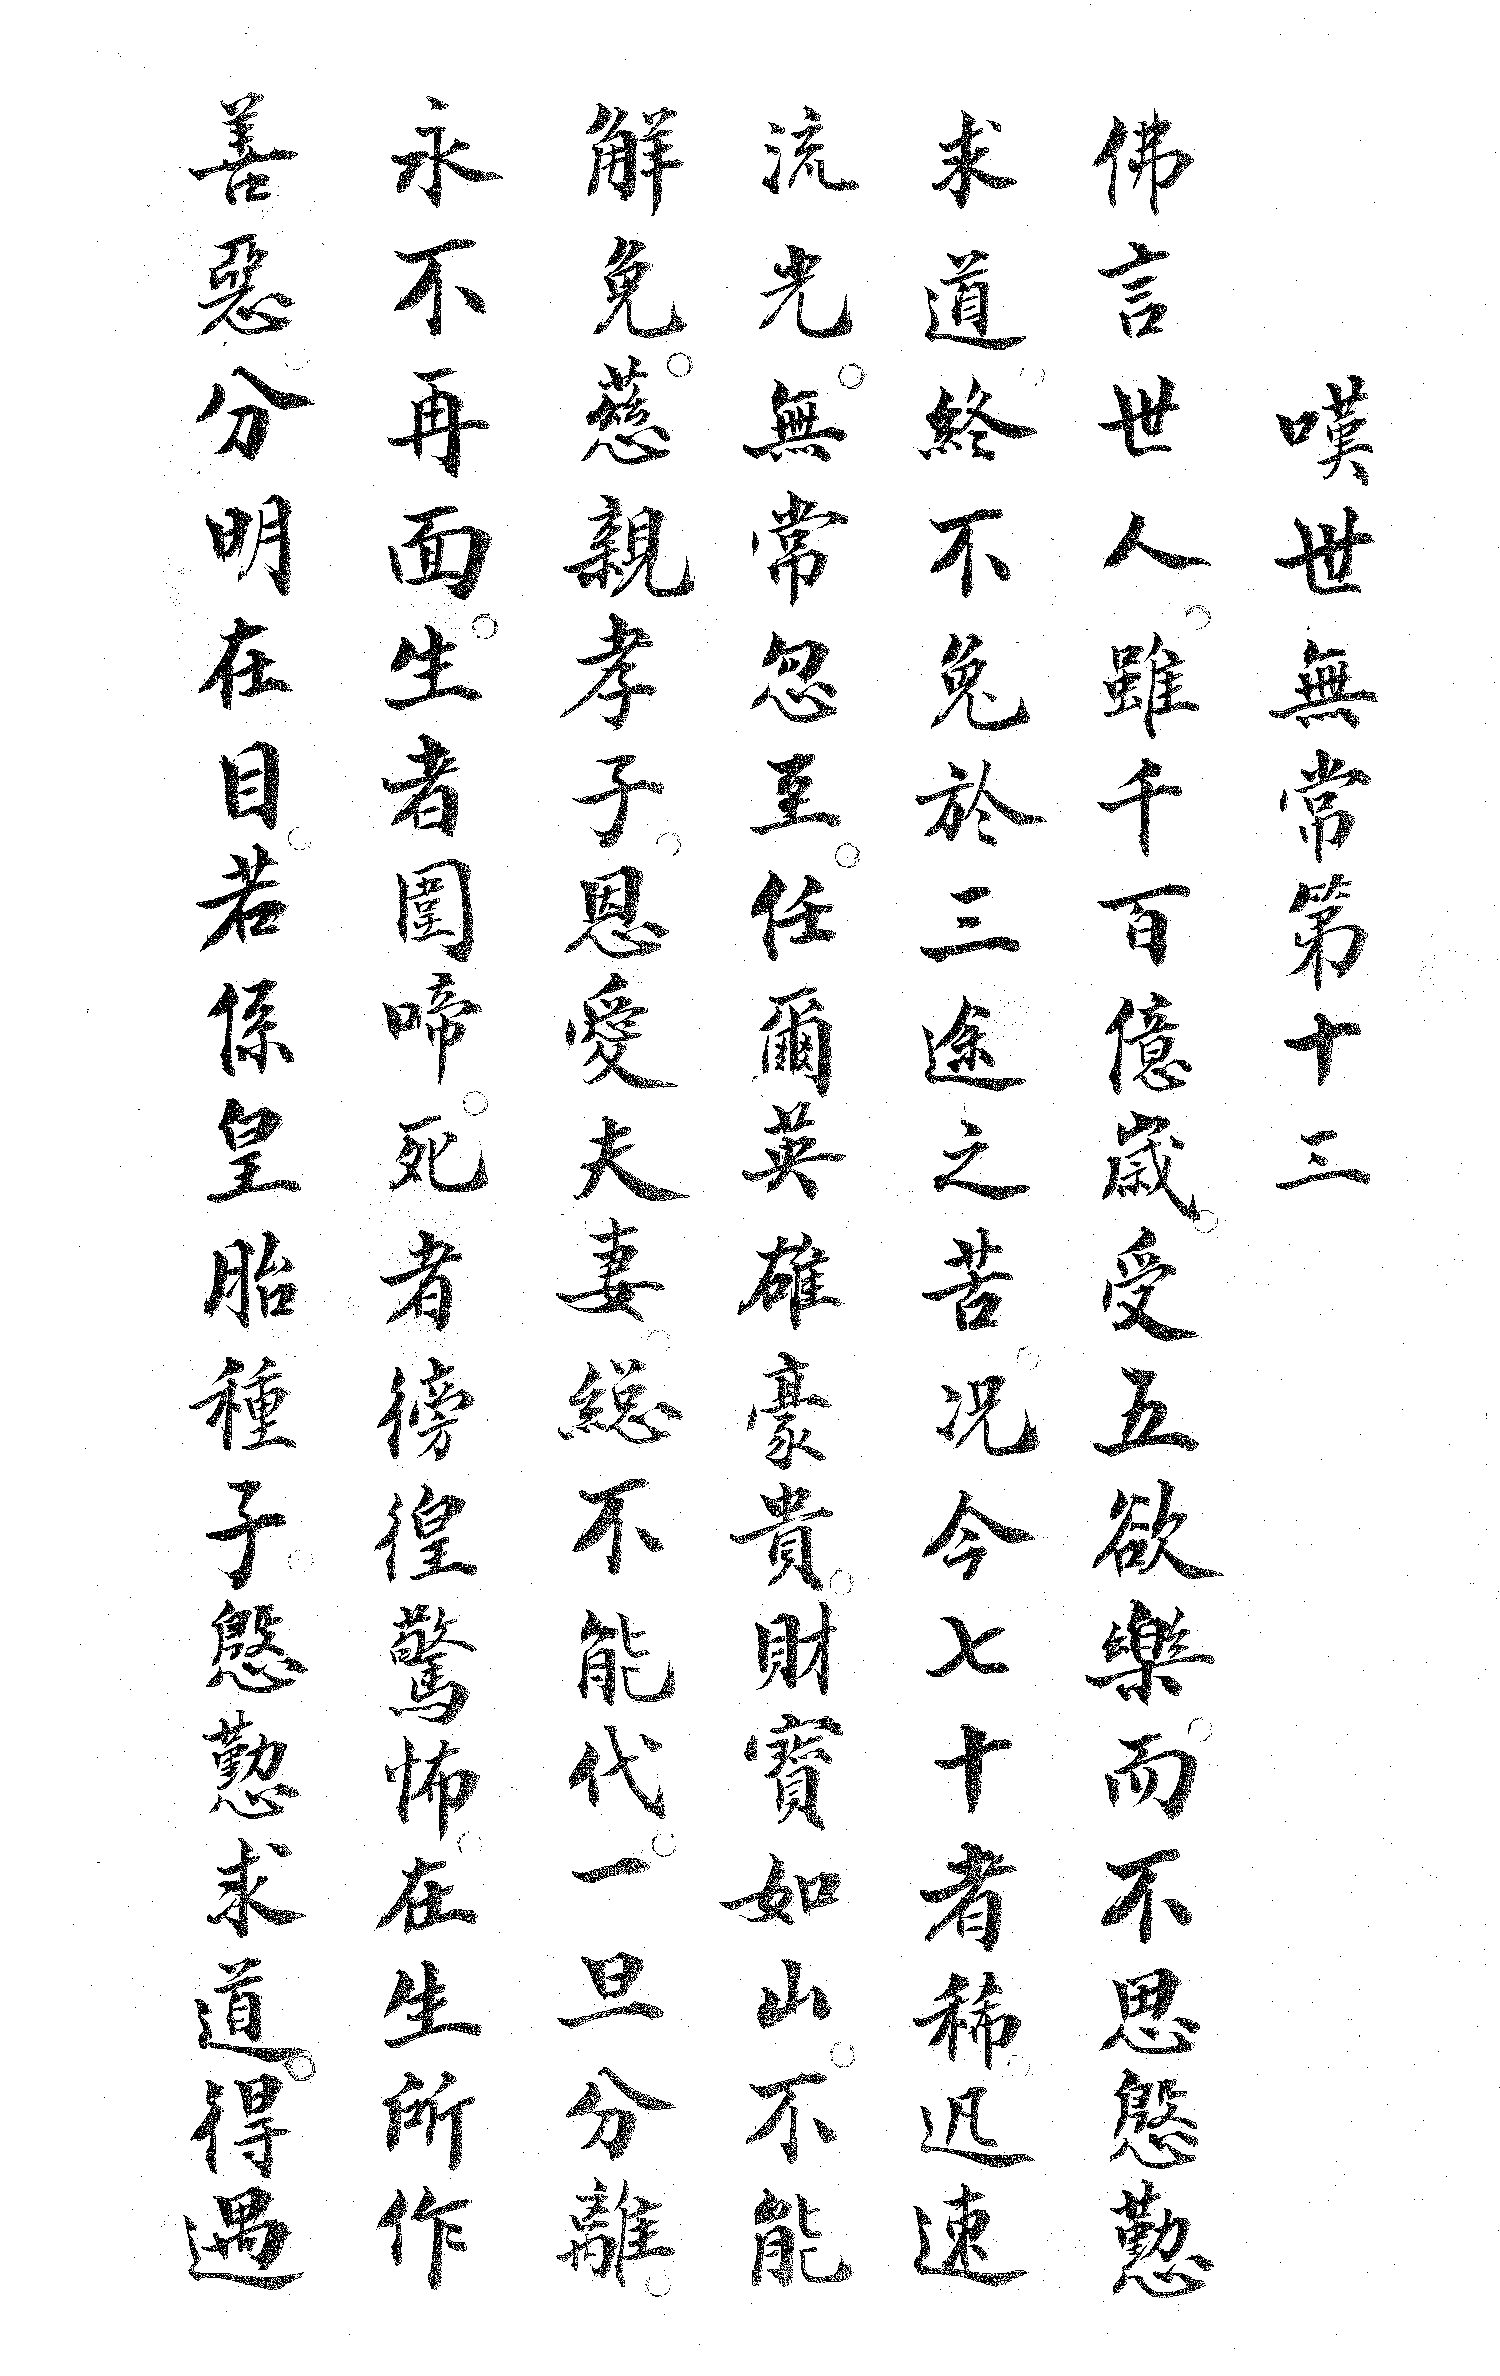 嘆世無常第十三
佛言世人。雖千百億歲。受五欲樂。而不思慇懃
求道。終不免於三途之苦。况今七十者稀。迅速
流光。無常忽至。任爾英雄豪貴。財寶如山。不能
解免。慈親孝子。恩愛夫妻。総不能代。一旦分離。
永不再面。生者圍啼。死者徬徨驚怖。在生所作
善惡。分明在目。若係皇胎種子。慇懃求道。得遇